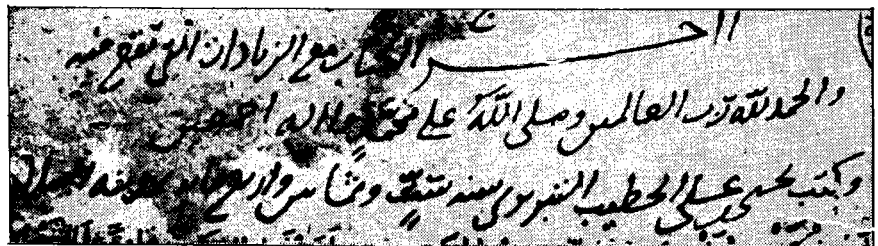 آخر الكتاب مع الزيادات التي تقع فيه
والحمد لله رب العالمين وصلى الله على محمد واله اجمعين
وكتب يحيى بن علي الخطيب التبريزي سنة ستٍّ وثمانين واربع مائة